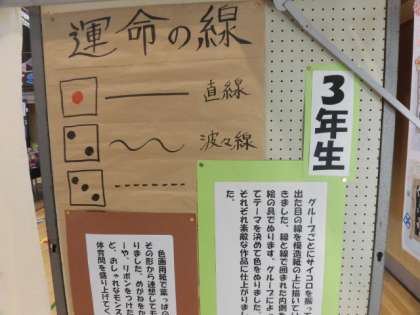 運命の線
直線
波々線
3年生
グループごとにサイコロを振って
出た目の線を模造紙の上に描いてい
きました。線と線で囲まれた内側を
絵の具でぬります。グループによっ
てテーマを決めて色をぬりました。
それぞれ素敵な作品に仕上がりまし
た。
色画用紙で葉っぱの
その形から連想してモ
りました。めがねをか
ーや、リボンをつけた
ど、おしゃれなモンス
体育館を盛り上げてく